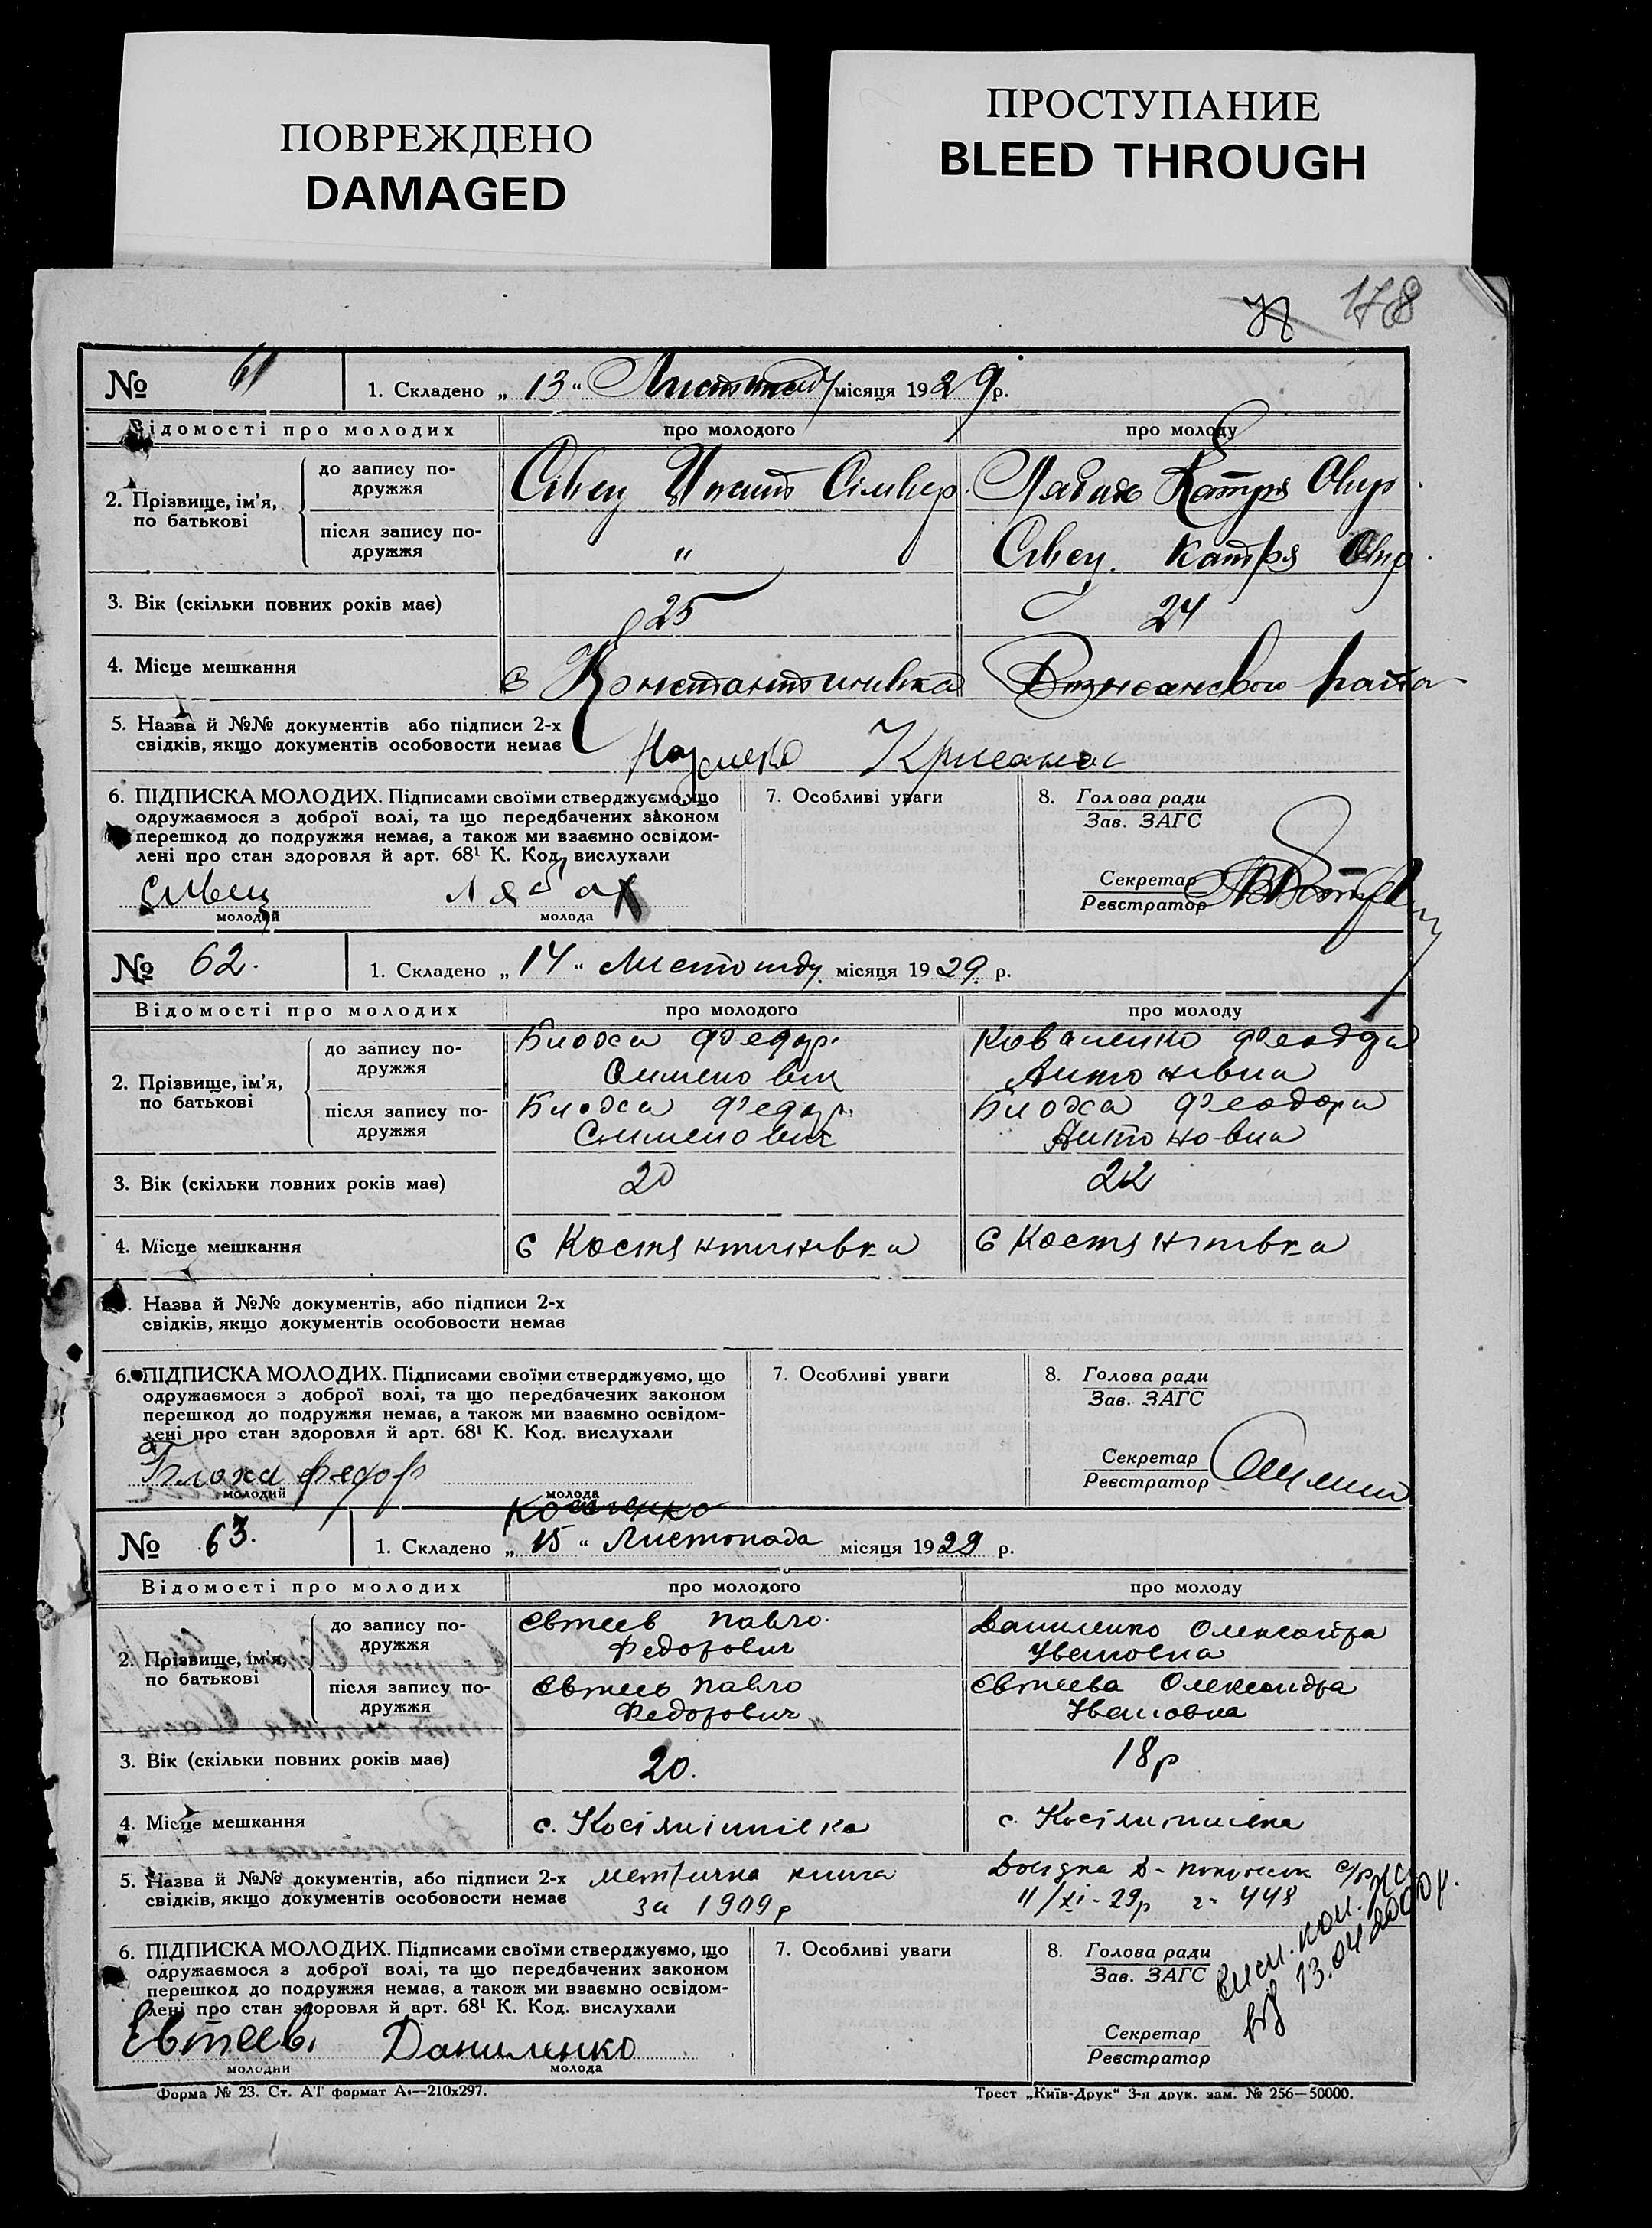 ПОВРЕЖДЕНО
DAMAGED
ПРОСТУПАНИЕ
BLEED THROUGH
178
№ 61 1. Складено „ 13 “ місяця 1929 р.
Відомості про молодих про молодого про молоду
2. Прізвище, ім’я, по батькові
до запису подружжя Сівец
після запису подружжя " Сівец. Катря
3. Вік (скільки повних років має) 25 24
4. Місце мешкання с Константинівка
5. Назва й №№ документів або підписи 2-х
свідків, якщо документів особовости немає
6. ПІДПИСКА МОЛОДИХ. Підписами своїми стверджуємо, що
одружаємося з доброї волі, та що передбачених законом
перешкод до подружжя немає, а також ми взаємно освідом-
лені про стан здоровля й арт. 68¹ К. Код. вислухали
Сівец Лябах
молодий молода
7. Особливі уваги
8. Голова ради
Зав. ЗАГС
Секретар
Реєстратор
№ 62. 1. Складено „ 14 “ Листопаду місяця 1929 р.
Відомості про молодих про молодого про молоду
2. Прізвище, ім’я, по батькові
до запису подружжя Блоха Федор Коваленко
Антонівна
після запису подружжя Блоха Федор Блоха Феодора
Антоновна
3. Вік (скільки повних років має) 20 22
4. Місце мешкання с Костянтинівка с Костянтинівка
Назва й №№ документів, або підписи 2-х
свідків, якщо документів особовости немає
6. ПІДПИСКА МОЛОДИХ. Підписами своїми стверджуємо, що
одружаємося з доброї волі, та що передбачених законом
перешкод до подружжя немає, а також ми взаємно освідом-
лені про стан здоровля й арт. 68¹ К. Код. вислухали
Блоха Федор
молодий молода
7. Особливі уваги
8. Голова ради
Зав. ЗАГС
Секретар
Реєстратор
№ 63. 1. Складено „ 15 “ Листопада місяця 1929 р.
Відомості про молодих про молодого про молоду
2. Прізвище, ім’я, по батькові
до запису подружжя Євтеев Павло Даниленко Олександра
Федорович Івановна
після запису подружжя Євтеев Павло Євтеева Олександра
Федорович Івановна
3. Вік (скільки повних років має) 20. 18р
4. Місце мешкання с. с.
5. Назва й №№ документів, або підписи 2-х метрична книга
свідків, якщо документів особовости немає за 1909 р 11/XI-29р 448
6. ПІДПИСКА МОЛОДИХ. Підписами своїми стверджуємо, що
одружаємося з доброї волі, та що передбачених законом
перешкод до подружжя немає, а також ми взаємно освідом-
лені про стан здоровля й арт. 68¹ К. Код. вислухали
Евтеев Даниленко
молодий молода
7. Особливі уваги
8. Голова ради
Зав. ЗАГС
Секретар
Реєстратор
від 13.04.2000р.
Форма № 23. Ст. АТ формат А₄—210х297.
Трест „Київ-Друк“ 3-я друк. зам. № 256—50000.